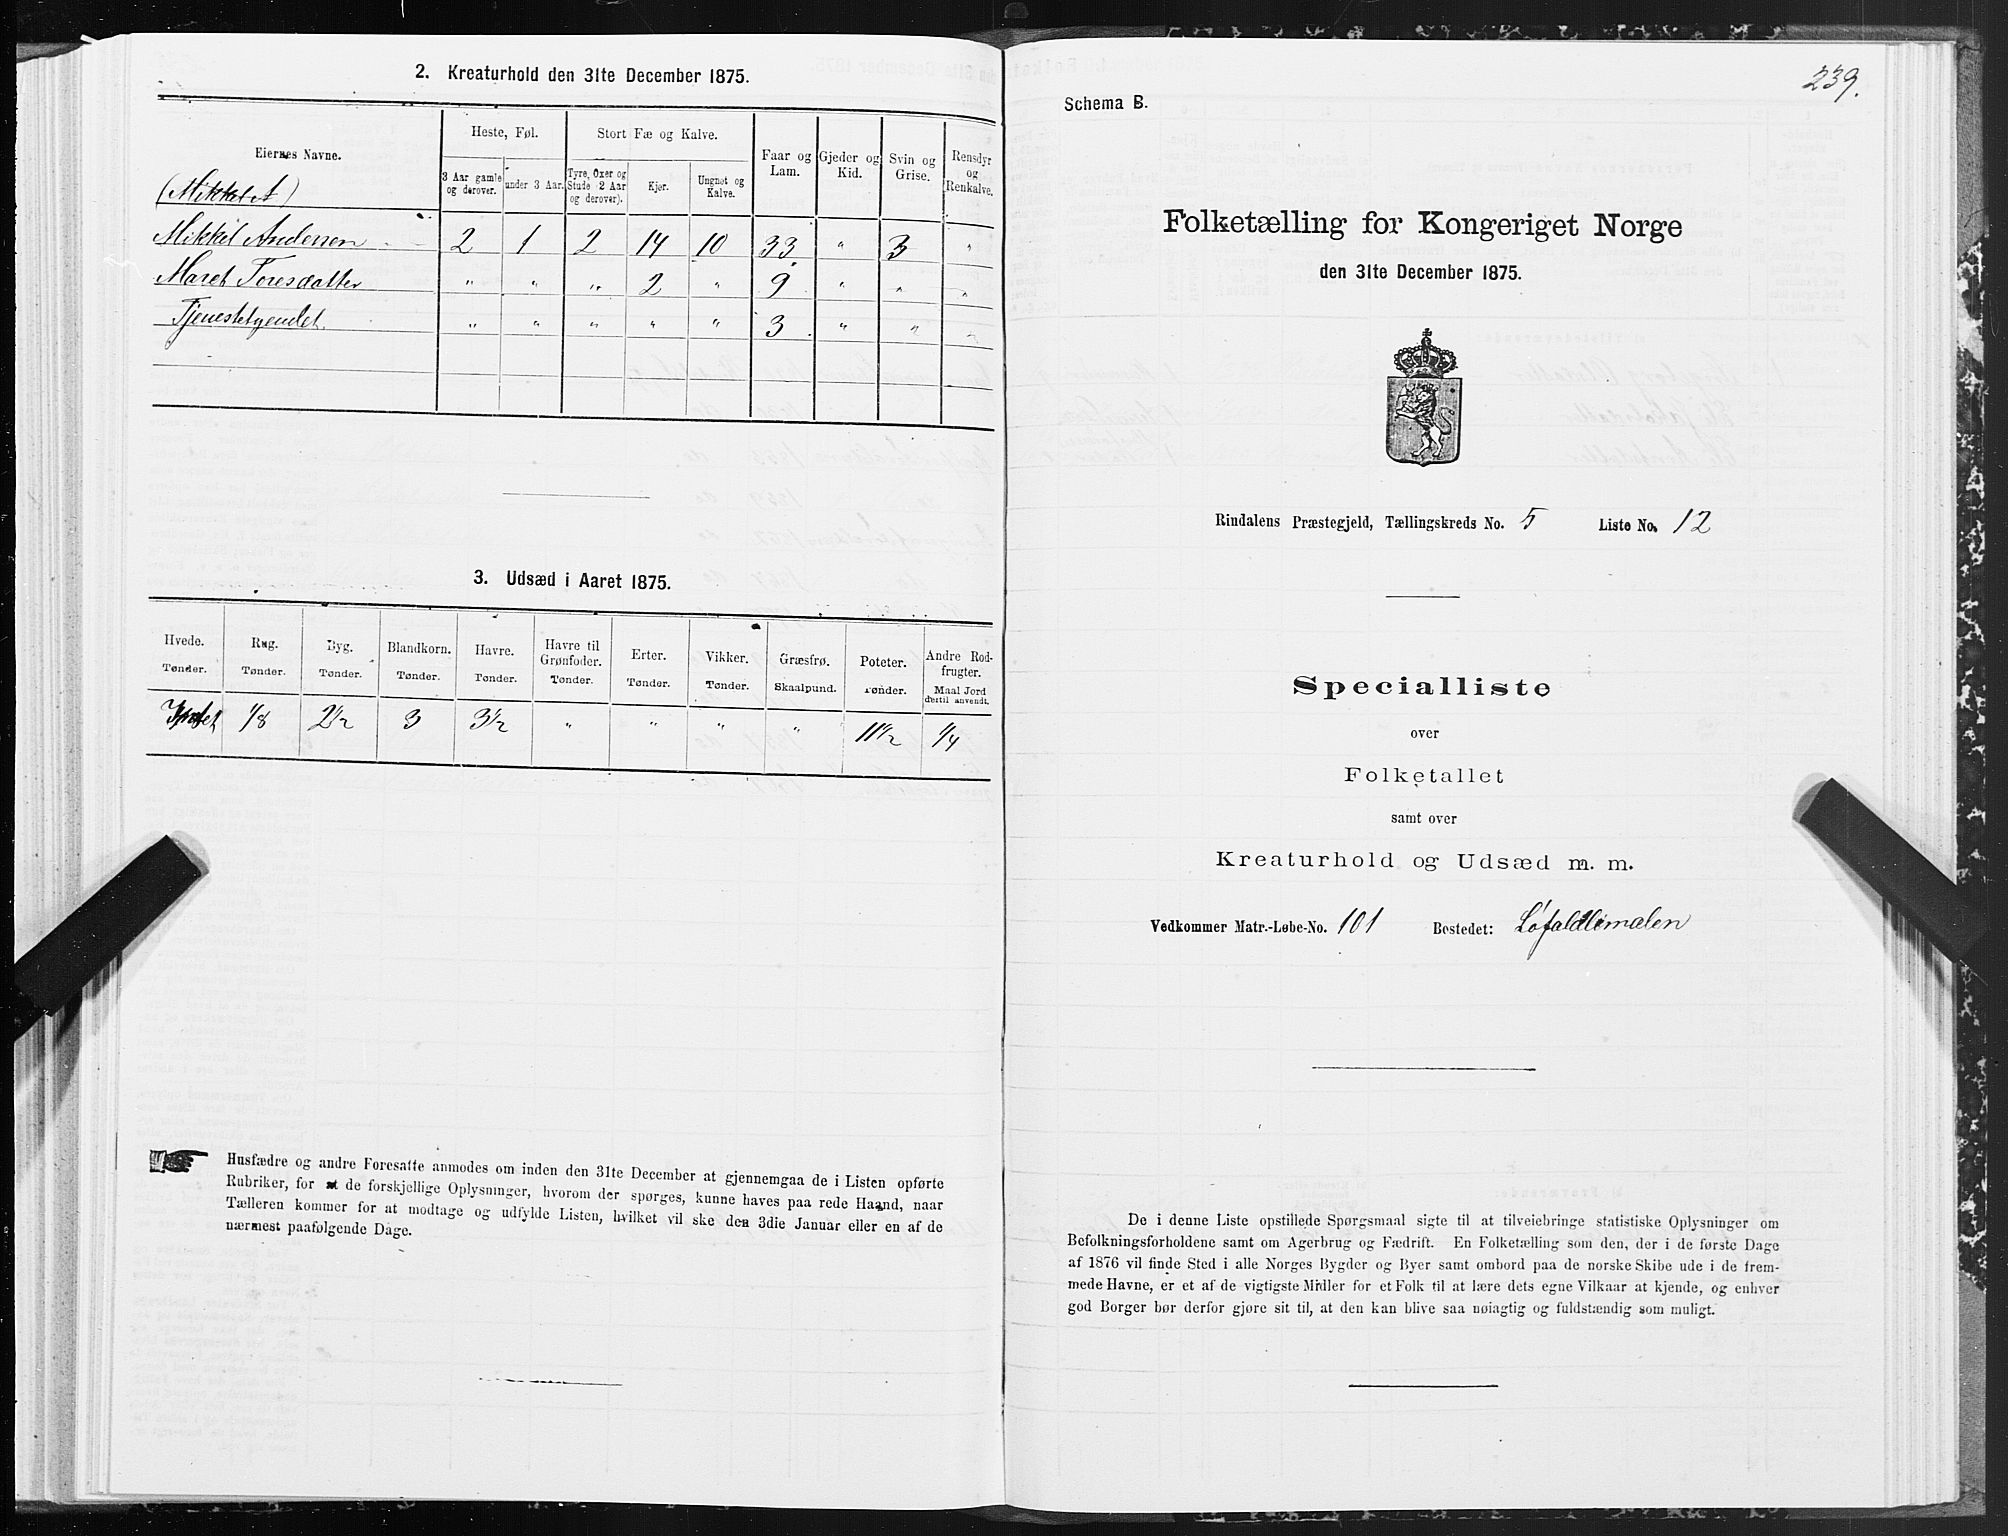 2. Kreaturhold den 31te December 1875.
Eiernes Navne.
Heste, Føl.
Stort Fæ og Kalve.
Faar og Lam.
Gjeder og Kid.
Svin og Grise.
Rensdyr og Renkalve.
3 Aar gamle og derover.
under 3 Aar.
Tyre, Oxer og Stude 2 Aar og derover).
Kjør.
Ungnøt og Kalve.
(Mikkel A)
Mikkel Andersen 2 1 2 14 10 33 " 3 "
Maret Toresdatter " " " 2 " 9 " " "
Tjenestetyendet. " " " " " 3 " " "
3. Udsæd i Aaret 1875.
Hvede. Rug. Byg. Blandkorn. Havre. Havre til Grønfoder. Erter. Vikker. Græsfrø. Poteter. Andre Rodfrugter.
Tønder. Tønder. Tønder. Tønder. Tønder. Tønder. Tønder. Tønder. Skaalpund. Tønder. Maal Jord dertil anvendt.
Intet 1/8 2 1/2 3 3 1/2 " " " " 11 1/2 1/4
Husfædre og andre Foresatte anmodes om inden den 31te December at gjennemgaa de i Listen opførte
Rubriker, for at de forskjellige Oplysninger, hvorom der spørges, kunne haves paa rede Haand, naar
Tælleren kommer for at modtage og udfylde Listen, hvilket vil ske den 3die Januar eller en af de
nærmest paafølgende Dage.
239.
Schema B.
Folketælling for Kongeriget Norge
den 31te December 1875.
Rindalens Præstegjeld, Tællingskreds No. 5 Liste No. 12
Specialliste
over
Folketallet
samt over
Kreaturhold og Udsæd m. m.
Vedkommer Matr.-Løbe-No. 101 Bostedet: Løfaldlimalen
De i denne Liste opstillede Spørgsmaal sigte til at tilveiebringe statistiske Oplysninger om
Befolkningsforholdene samt om Agerbrug og Fædrift. En Folketælling som den, der i de første Dage
af 1876 vil finde Sted i alle Norges Bygder og Byer samt ombord paa de norske Skibe ude i de frem-
mede Havne, er et af de vigtigste Midler for et Folk til at lære dets egne Vilkaar at kjende, og enhver
god Borger bør derfor gjøre sit til, at den kan blive saa nøiagtig og fuldstændig som muligt.